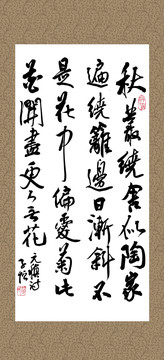 秋叢繞舍似陶家
遍繞籬邊日漸斜不
是花中偏愛菊此
花開盡更无花
元稹詩